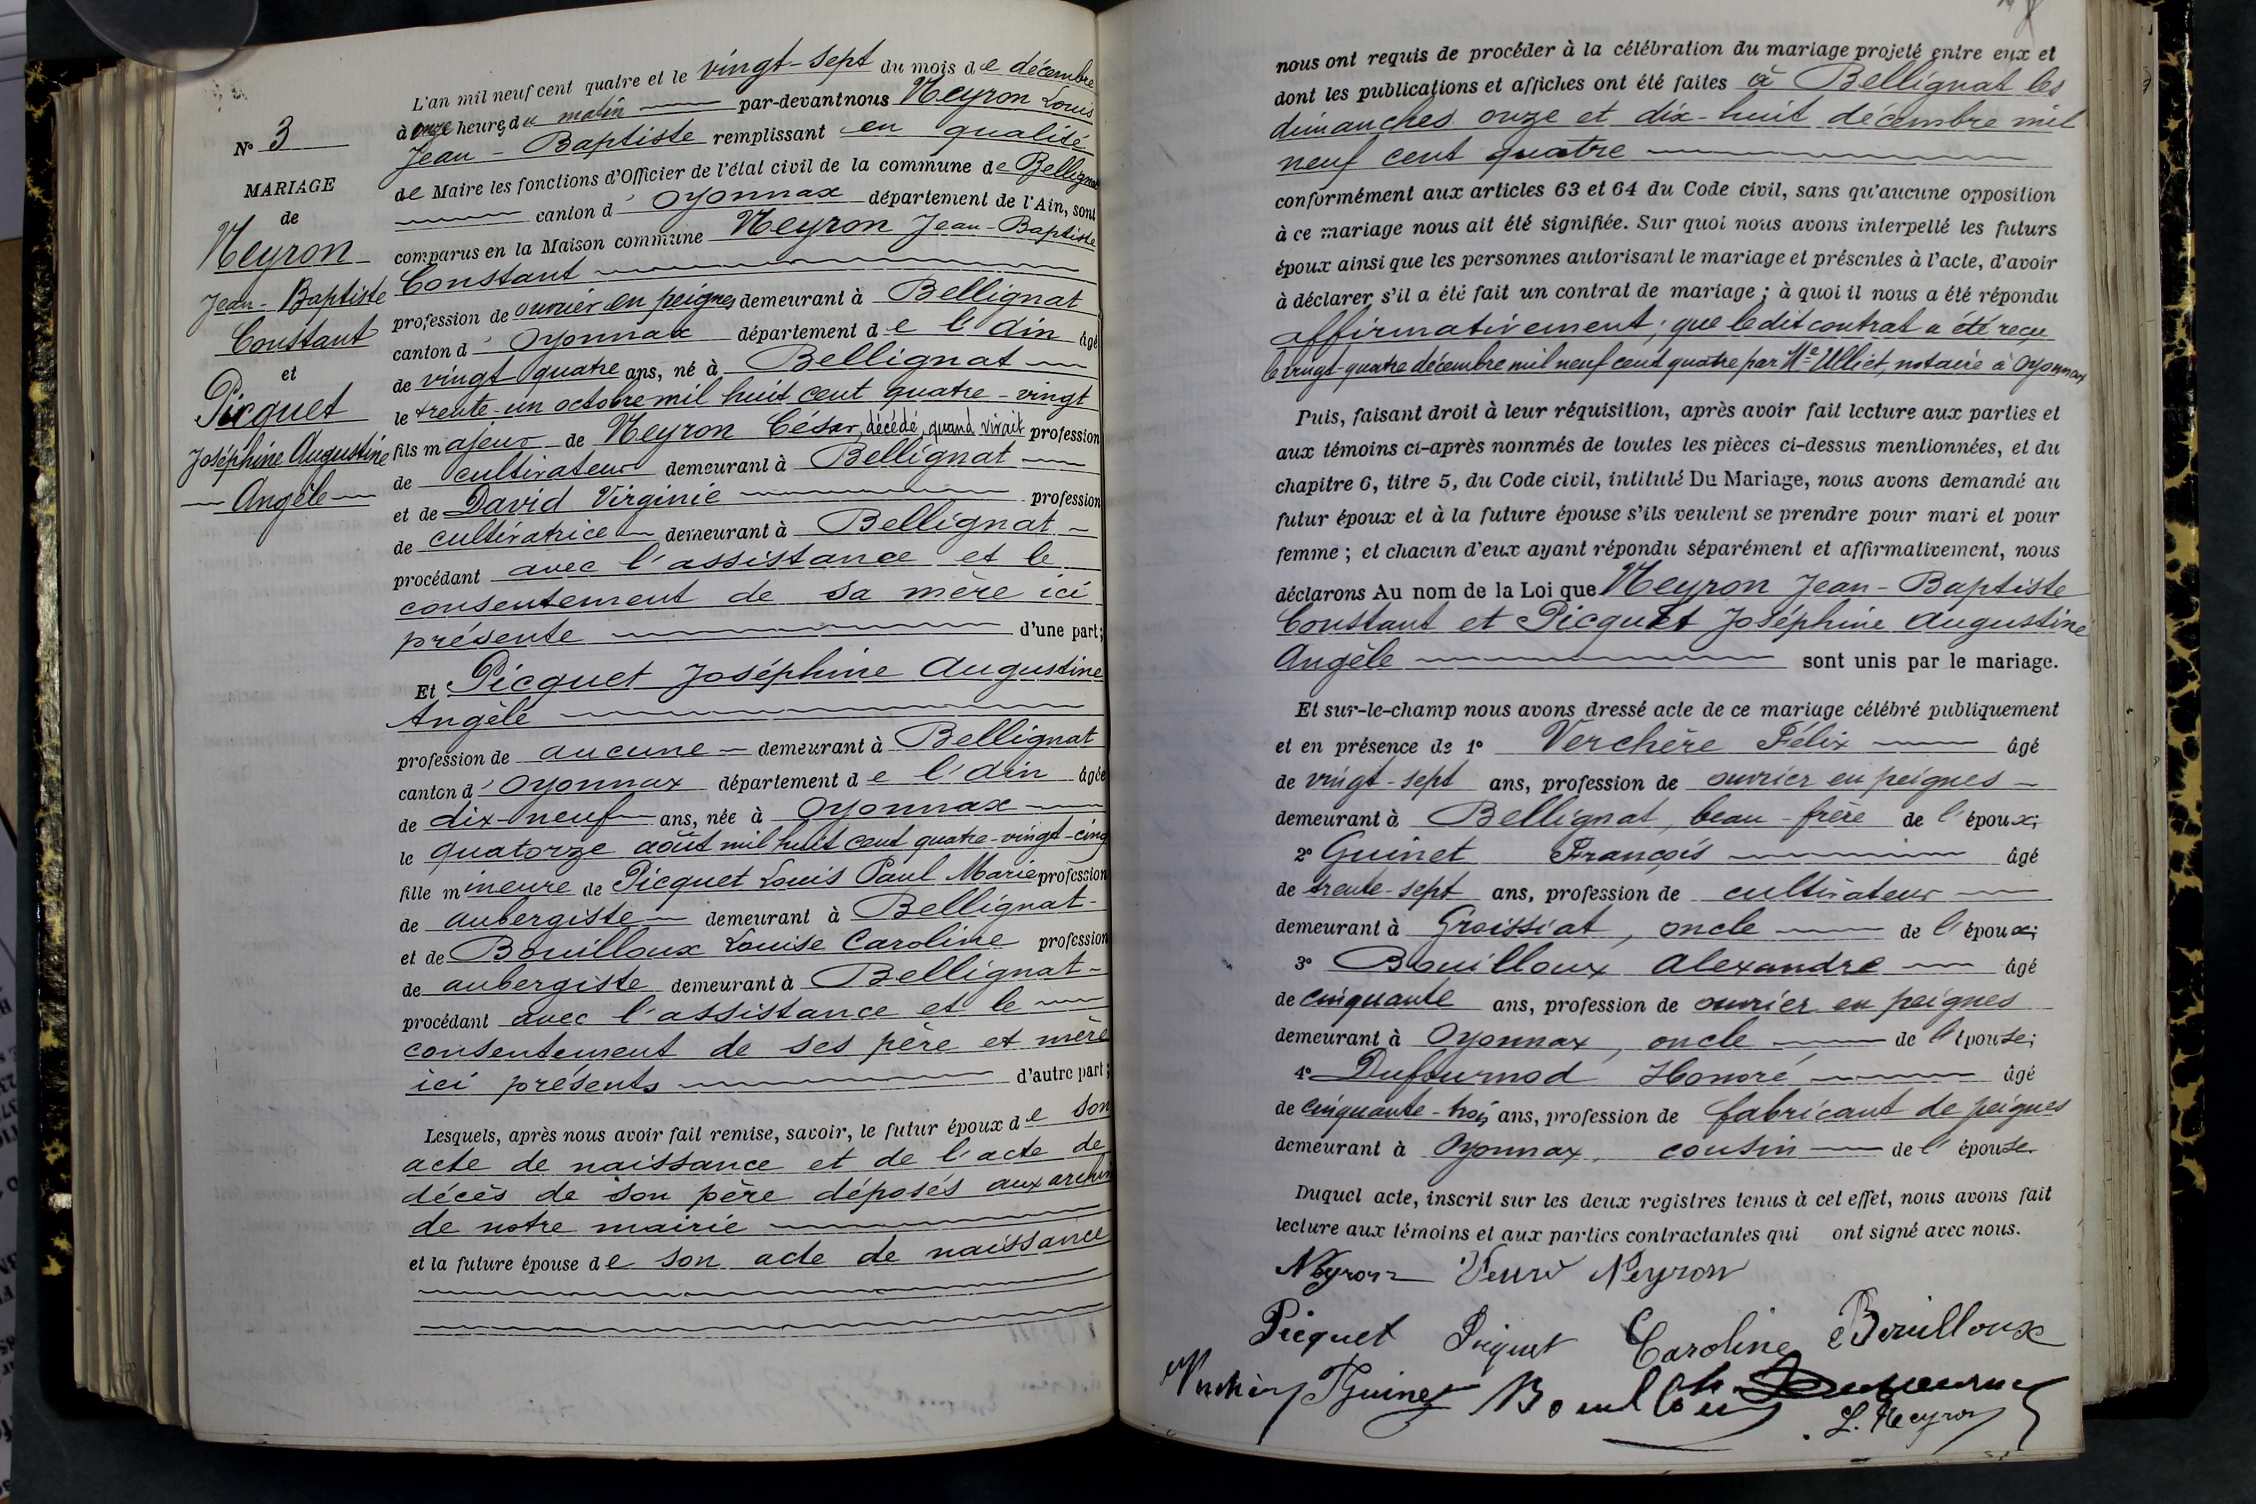 N° 3
MARIAGE
de
Neyron
Jean-Baptiste
Constant
et
Picquet
Joséphine Augustine
Angèle
L'an mil neuf cent quatre et le vingt-sept du mois de décembre
à onze heures du matin par-devant nous Neyron Louis
Jean-Baptiste remplissant en qualité
de Maire les fonctions d'Officier de l'état civil de la commune de Bellignat
canton d'Oyonnax département de l'Ain, sont
comparus en la Maison commune Neyron Jean-Baptiste
Constant
profession de ouvrier en peignes demeurant à Bellignat
canton d'Oyonnax département de l'Ain âgé
de vingt quatre ans, né à Bellignat
le trente-un octobre mil huit cent quatre-vingt
fils majeur de Neyron César, décédé, quand vivait profession
de cultivateur demeurant à Bellignat
et de David Virginie profession
de cultivatrice demeurant à Bellignat
procédant avec l'assistance et le
consentement de sa mère ici
présente d'une part;
Et Picquet Joséphine Augustine
Angèle
profession de aucune demeurant à Bellignat
canton d'Oyonnax département de l'Ain âgée
de dix-neuf ans, née à Oyonnax
le quatorze août mil huit cent quatre-vingt-cinq
fille mineure de Picquet Louis Paul Marie profession
de aubergiste demeurant à Bellignat
et de Bouilloux Louise Caroline profession
de aubergiste demeurant à Bellignat
procédant avec l'assistance et le
consentement de ses père et mère
ici présents d'autre part;
Lesquels, après nous avoir fait remise, savoir, le futur époux de son
acte de naissance et de l'acte de
décès de son père déposés aux archives
de notre mairie
et la future épouse de son acte de naissance
nous ont requis de procéder à la célébration du mariage projeté entre eux et
dont les publications et affiches ont été faites à Bellignat les
dimanches onze et dix-huit décembre mil
neuf cent quatre
conformément aux articles 63 et 64 du Code civil, sans qu'aucune opposition
à ce mariage nous ait été signifiée. Sur quoi nous avons interpellé les futurs
époux ainsi que les personnes autorisant le mariage et présentes à l'acte, d'avoir
à déclarer s'il a été fait un contrat de mariage; à quoi il nous a été répondu
affirmativement; que ledit contrat a été reçu
le vingt-quatre décembre mil neuf cent quatre par Me Ulliet, notaire à Oyonnax
Puis, faisant droit à leur réquisition, après avoir fait lecture aux parties et
aux témoins ci-après nommés de toutes les pièces ci-dessus mentionnées, et du
chapitre 6, titre 5, du Code civil, intitulé Du Mariage, nous avons demandé au
futur époux et à la future épouse s'ils veulent se prendre pour mari et pour
femme; et chacun d'eux ayant répondu séparément et affirmativement, nous
déclarons Au nom de la Loi que Neyron Jean-Baptiste
Constant et Picquet Joséphine Augustine
Angèle sont unis par le mariage.
Et sur-le-champ nous avons dressé acte de ce mariage célébré publiquement
et en présence de 1° Verchère Félix âgé
de vingt-sept ans, profession de ouvrier en peignes
demeurant à Bellignat, beau-frère de l'époux;
2° Guinet François âgé
de trente-sept ans, profession de cultivateur
demeurant à Groissiat, oncle de l'époux;
3° Bouilloux Alexandre âgé
de cinquante ans, profession de ouvrier en peignes
demeurant à Oyonnax, oncle de l'épouse;
4° Dufournod Honoré âgé
de cinquante-trois ans, profession de fabricant de peignes
demeurant à Oyonnax, cousin de l'épouse
Duquel acte, inscrit sur les deux registres tenus à cet effet, nous avons fait
lecture aux témoins et aux parties contractantes qui ont signé avec nous.
Neyron Veuve Neyron
Picquet Piquet Caroline Bouilloux
F Guinet Bouilloux
L. Neyron